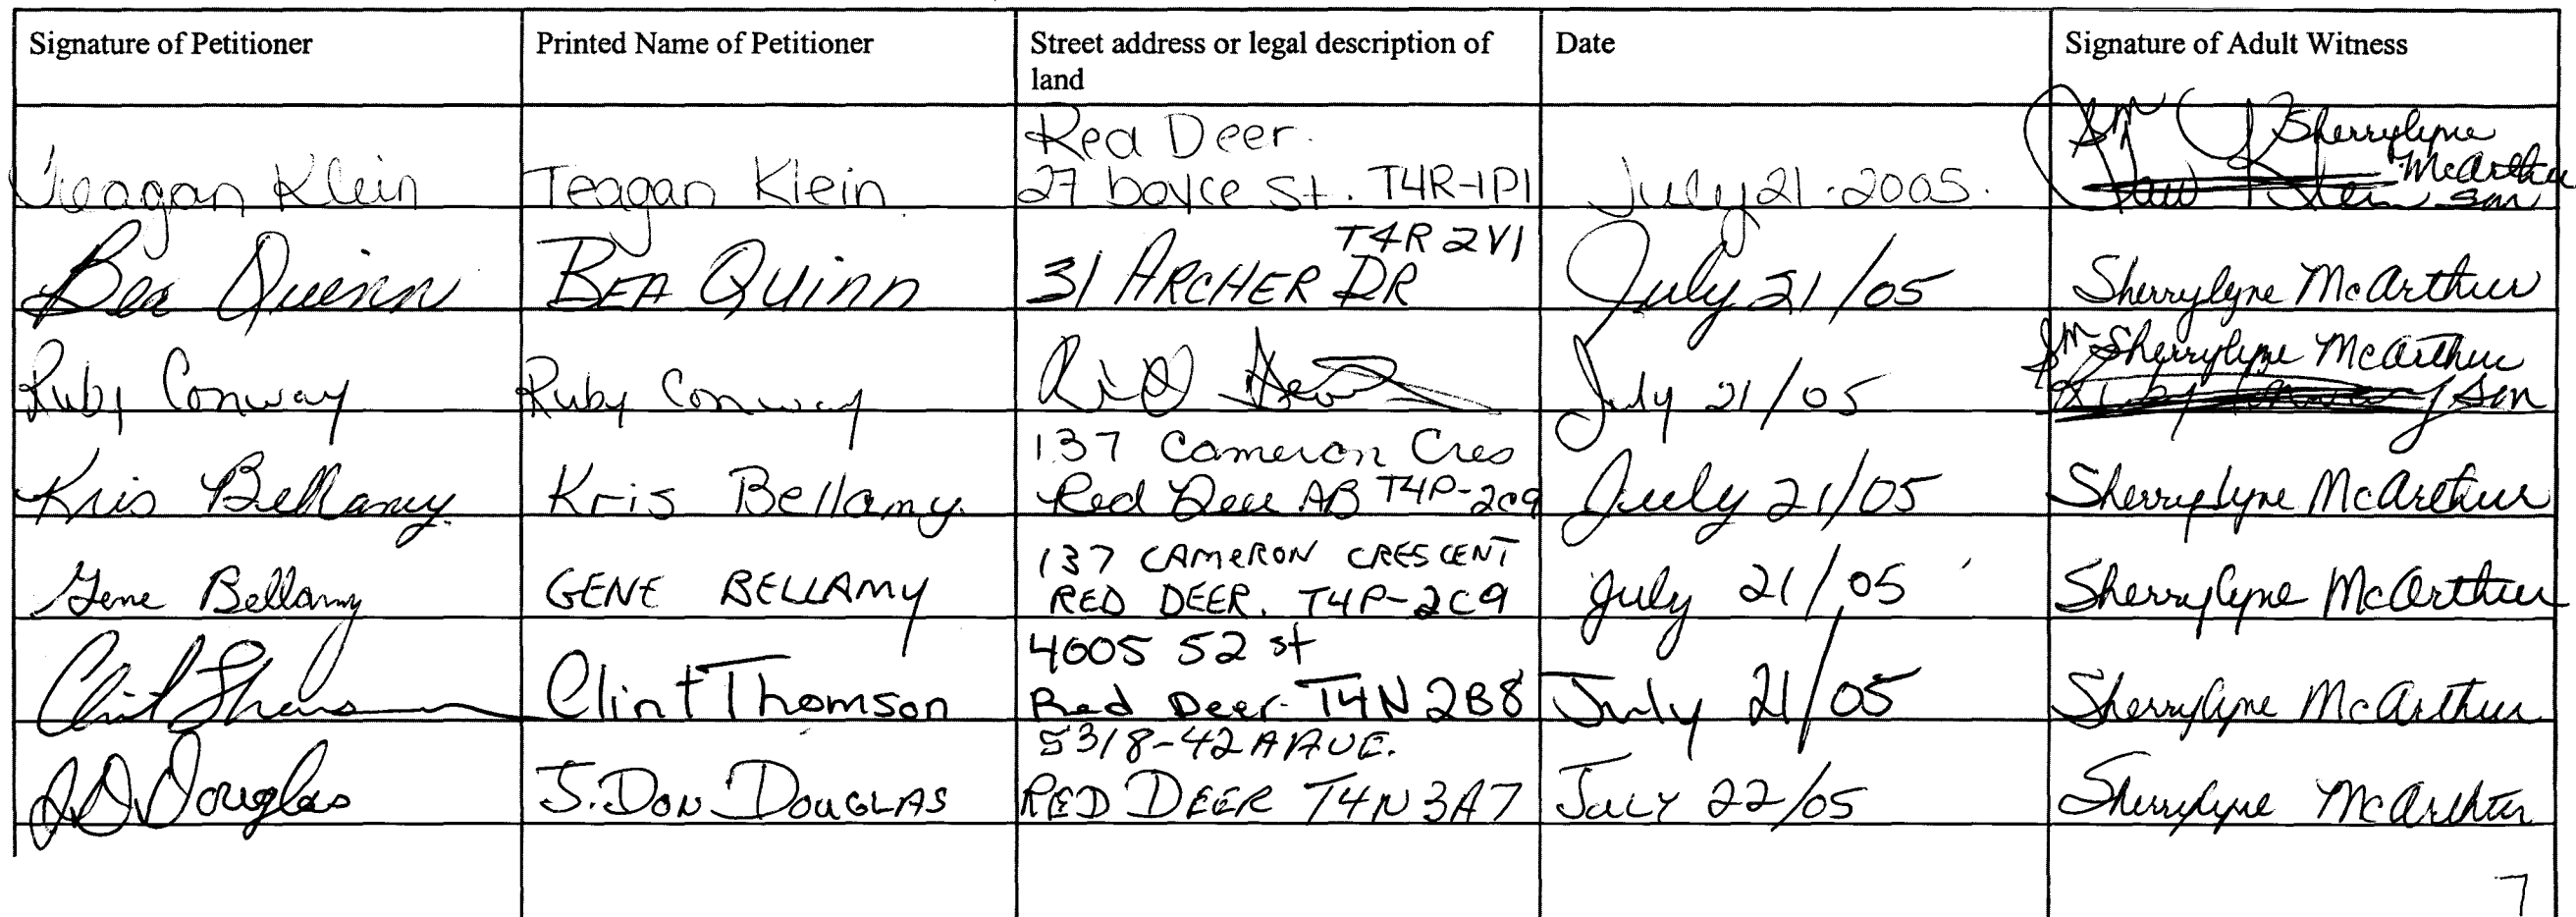 Signature of Petitioner
Printed Name of Petitioner
Street address or legal description of
land
Date
Signature of Adult Witness
Teagan Klein
Teagan Klein
Red Deer.
27 boyce St. T4R-1P1
July 21·2005.
SM Sherrylyne
McArthur
Bea Quinn
BEA QUinn
T4R 2V1
31 ARCHER DR
July 21/05
Sherrylyne McArthur
Ruby Conway
Ruby Conway
July 21/05
SM Sherrylyne McArthur
Kris Bellamy
Kris Bellamy
137 Cameron Cres
Red Deer AB T4P-2C9
July 21/05
Sherrylyne McArthur
Gene Bellamy
GENE BELLAMY
137 CAMERON CRESCENT
RED DEER. T4P-2C9
July 21/05
Sherrylyne McArthur
Clint Thomson
4005 52 st
Red Deer T4N 2B8
July 21/05
Sherrylyne McArthur
JD Douglas
J. DON DOUGLAS
5318-42A AVE.
RED DEER T4N 3A7
JULY 22/05
Sherrylyne McArthur
7